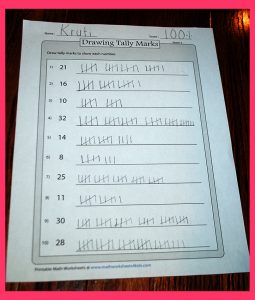 Name : Kruti Score : 100%
Drawing Tally Marks
Sheet 1
Draw tally marks to show each number.
1) 21
2) 16
3) 10
4) 32
5) 14
6) 8
7) 25
8) 11
9) 30
10) 28
Printable Math Worksheets @ www.mathworksheets4kids.com